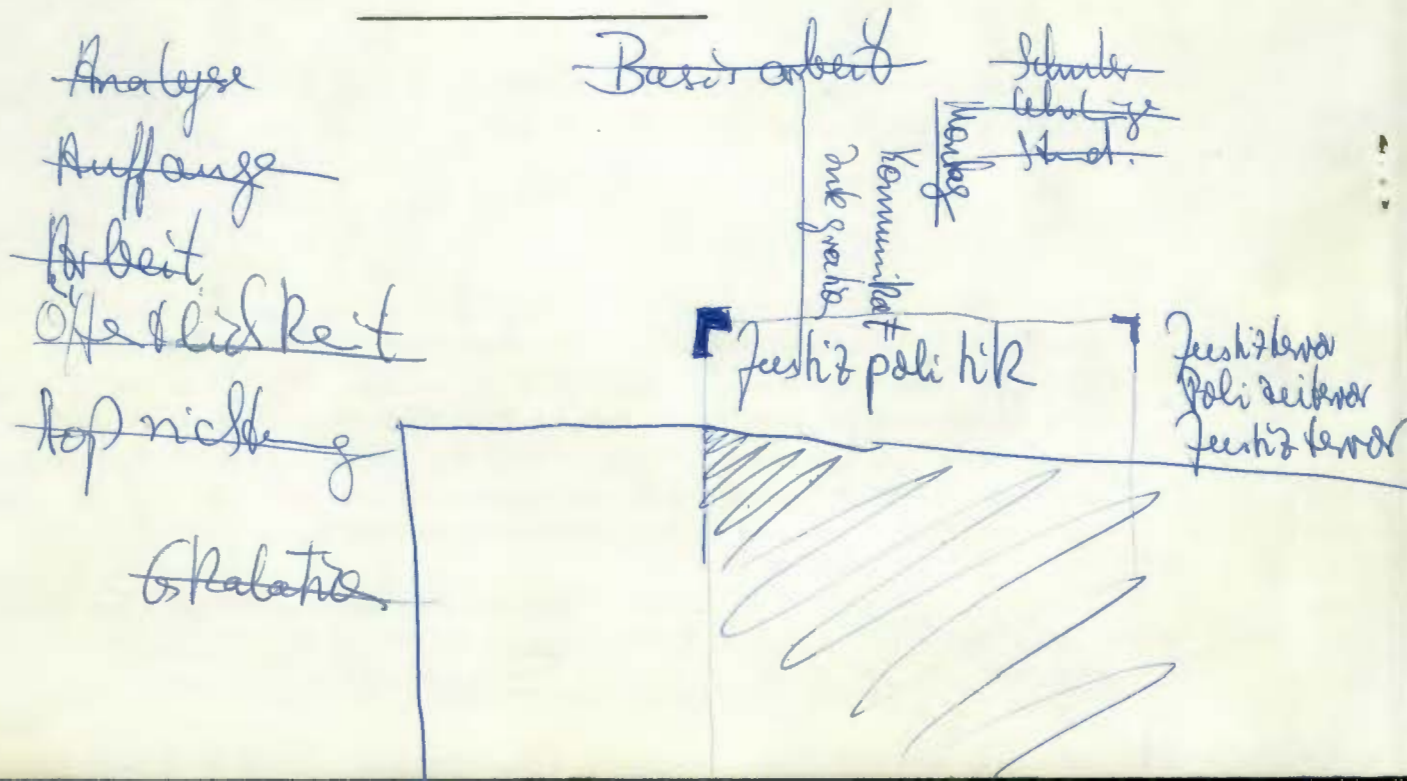 Analyse
Auffange
Arbeit
Öffentlichkeit
Eskalation
Basisarbeit
Schüler
Lehrlinge
Stud.
Montag
Kommunikat
Integration
Justizpolitik
Justizterror
Polizeiterror
Justizterror